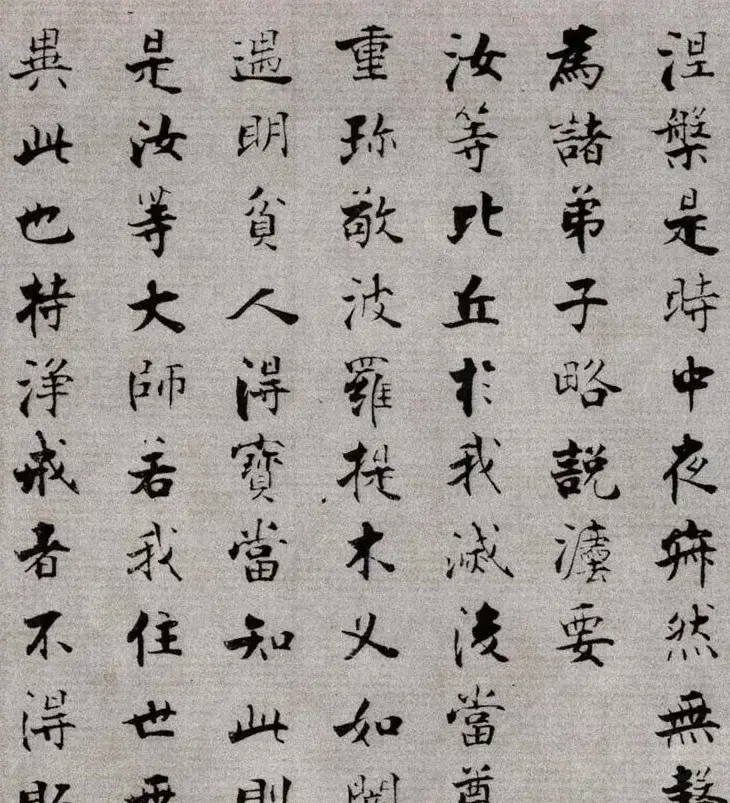 涅槃是時中夜寂然無聲
為諸弟子略說灋要
汝等比丘於我滅後當尊
重珍敬波羅提木叉如闇
遇明貧人得寶當知此則
是汝等大師若我住世無
異此也持淨戒者不得販